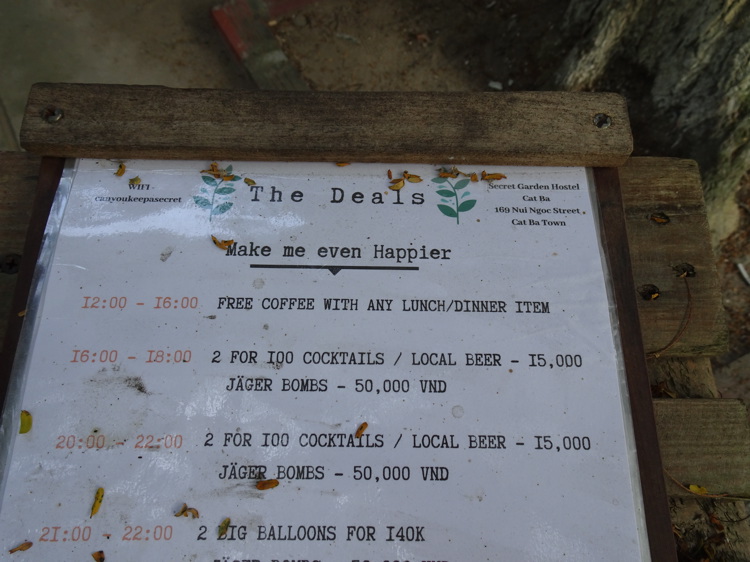 WIFI -
canyoukeepasecret
The Deals
Secret Garden Hostel
Cat Ba
169 Nui Ngoc Street,
Cat Ba Town
Make me even Happier
12:00 - 16:00 FREE COFFEE WITH ANY LUNCH/DINNER ITEM
16:00 - 18:00 2 FOR 100 COCKTAILS / LOCAL BEER - 15,000
JÄGER BOMBS - 50,000 VND
20:00 - 22:00 2 FOR 100 COCKTAILS / LOCAL BEER - 15,000
JÄGER BOMBS - 50,000 VND
21:00 - 22:00 2 BIG BALLOONS FOR 140K
JÄGER BOMBS